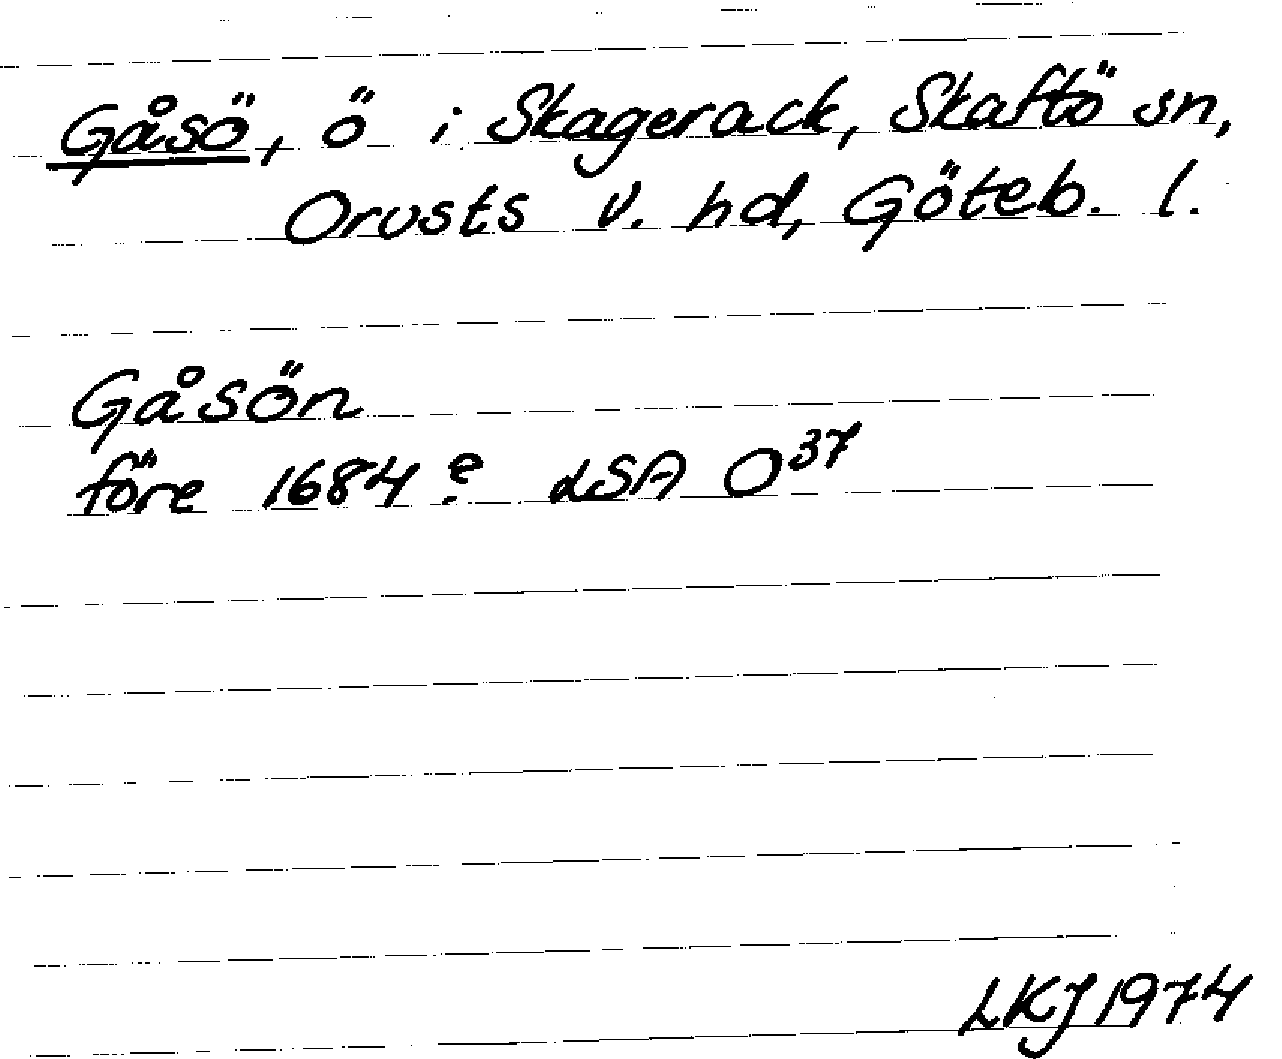 Gåsö, ö i Skagerack, Skaftö sn,
Orusts v. hd, Göteb. l.
Gåsön
före 1684? LSA O37
LKJ 1974